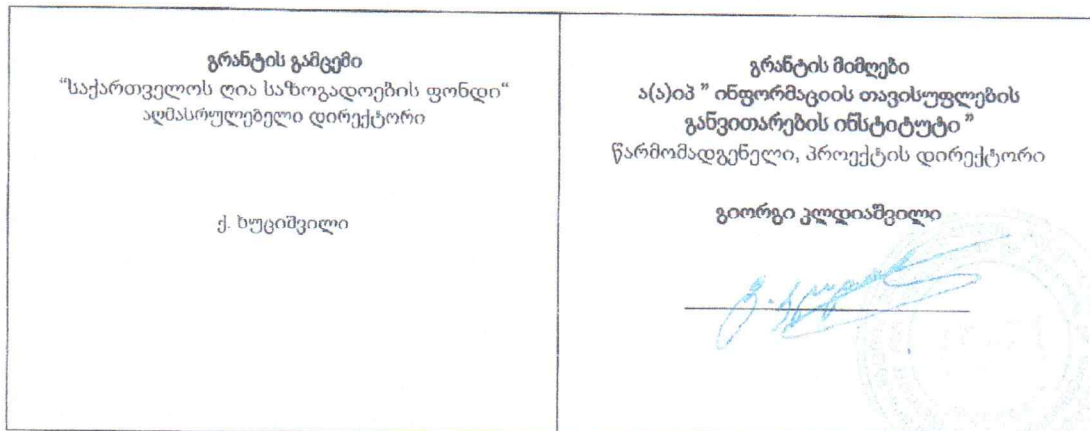 გრანტის გამცემი
“საქართველოს ღია საზოგადოების ფონდი“
აღმასრულებელი დირექტორი
ქ. ხუციშვილი
გრანტის მიმღები
ა(ა)იპ ” ინფორმაციის თავისუფლების
განვითარების ინსტიტუტი ”
წარმომადგენელი, პროექტის დირექტორი
გიორგი კლდიაშვილი